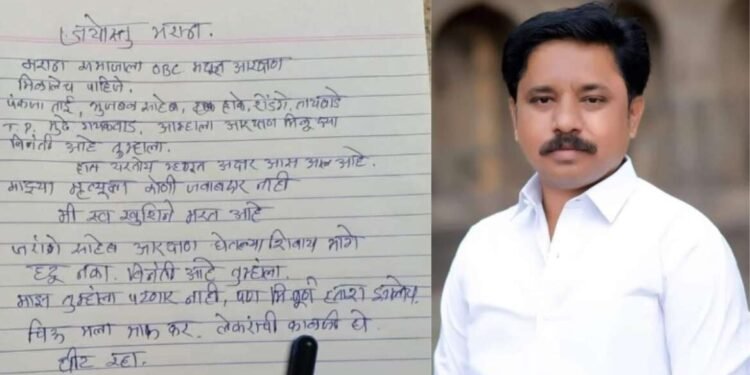 जयोस्तु मराठा.
मराठा समाजाला OBC मधून आरक्षण
मिळालेच पाहिजे.
पंकजा ताई, भुजबळ साहेब, हाके, शेंडगे, तायवाडे
T.P. मुंढे गायकवाड, आम्हाला आरक्षण मिळू द्या
विनंती आहे तुम्हाला.
हात थरतोय म्हणून अक्षर आस आल आहे.
माझ्या मृत्यूला कोणी जवाबदार नाही
मी स्व खुशिने मरत आहे
जरांगे साहेब आरक्षण घेतल्या शिवाय मागे
हटू नका. विनंती आहे तुम्हांला.
माझ तुम्हांला पटणार नाही, पण मि पूर्ण हताश झालोय.
चिऊ मला माफ कर. लेकरांची काळजी घे.
धीट रहा.